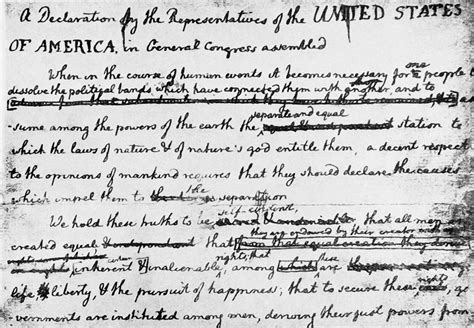 A Declaration by the Representatives of the UNITED STATES
OF AMERICA, in General Congress assembled
When in the course of human events it becomes necessary for
one
people
dissolve the political bands which have connected them with another, and to
as
sume among the powers of the earth the
separate and equal
station to
which the laws of nature & of nature's god entitle them, a decent respect
to the opinions of mankind requires that they should declare the causes
which impel them to
the
separation
We hold these truths to be
self-evident,
that all men are
created equal
that
they are endowed by their creator with
rights; that
inherent & inalienable, among
these
are
life, liberty, & the pursuit of happiness; that to secure these
rights
go
vernments are instituted among men, deriving their just powers from